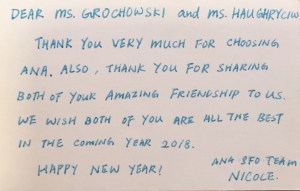 DEAR MS. GROCHOWSKI and MS. HAUGHRYCIW
THANK YOU VERY MUCH FOR CHOOSING
ANA. ALSO, THANK YOU FOR SHARING
BOTH OF YOUR AMAZING FRIENDSHIP TO US.
WE WISH BOTH OF YOU ARE ALL THE BEST
IN THE COMING YEAR 2018.
HAPPY NEW YEAR!
ANA SFO TEAM
NICOLE.